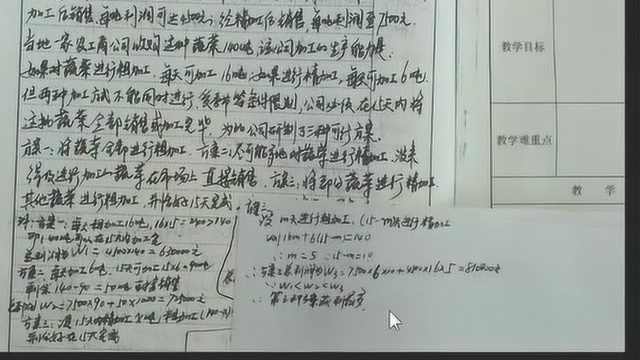 加工后销售,每吨利润可达4500元;经精加工后销售,每吨利润至7500元.
当地一家农工商公司收购这种蔬菜140吨,该公司加工的生产能力是:
如果对蔬菜进行粗加工,每天可加工16吨;如果进行精加工,每天可加工6吨,
但两种加工方式不能同时进行,受季节等条件限制,公司必须在15天内将
这批蔬菜全部销售或加工完毕,为此公司研制了三种可行方案:
方案一:将蔬菜全部进行粗加工.方案二:尽可能多地对蔬菜进行精加工,没来
得及进行加工的蔬菜在市场上直接销售.方案三:将部分蔬菜进行精加工,
其他蔬菜进行粗加工,并恰好15天完成.
解:方案一:每天粗加工16吨,16×15=240>140
总利润W1=4500×140=630000元
方案二:每天加工6吨,15天可加工15×6=90吨
剩余140-90=50吨直接销售
W2=7500×90+50×1000=725000元
并恰好在15天完成
教学目标
教学重难点
教 学
设m天进行粗加工,(15-m)天进行精加工
16m+6(15-m)=140
∴m=5 15-m=10
∴方案三总利润W3=7500×6×10+4500×16×5=810000元
∵W1<W2<W3